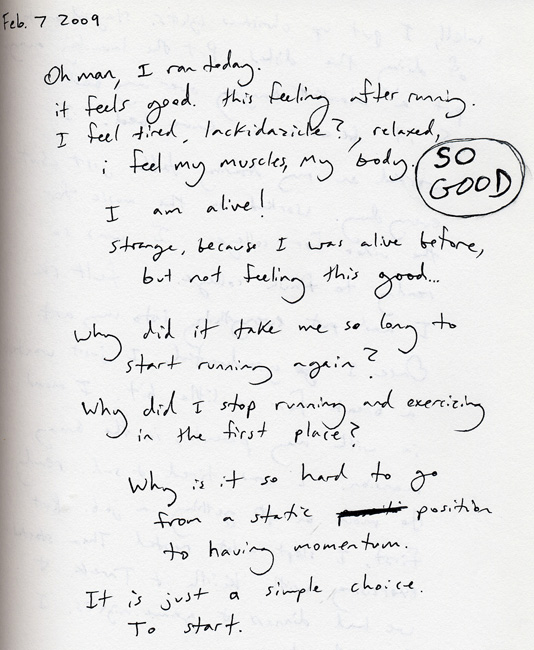 Feb. 7 2009
Oh man, I ran today.
it feels good. this feeling after running.
I feel tired, lackidazicle?, relaxed,
i feel my muscles, my body.
SO
GOOD
I am alive!
strange, because I was alive before,
but not feeling this good...
Why did it take me so long to
start running again?
Why did I stop running and exercizing
in the first place?
Why is it so hard to go
from a static position
to having momentum.
It is just a simple choice.
To start.